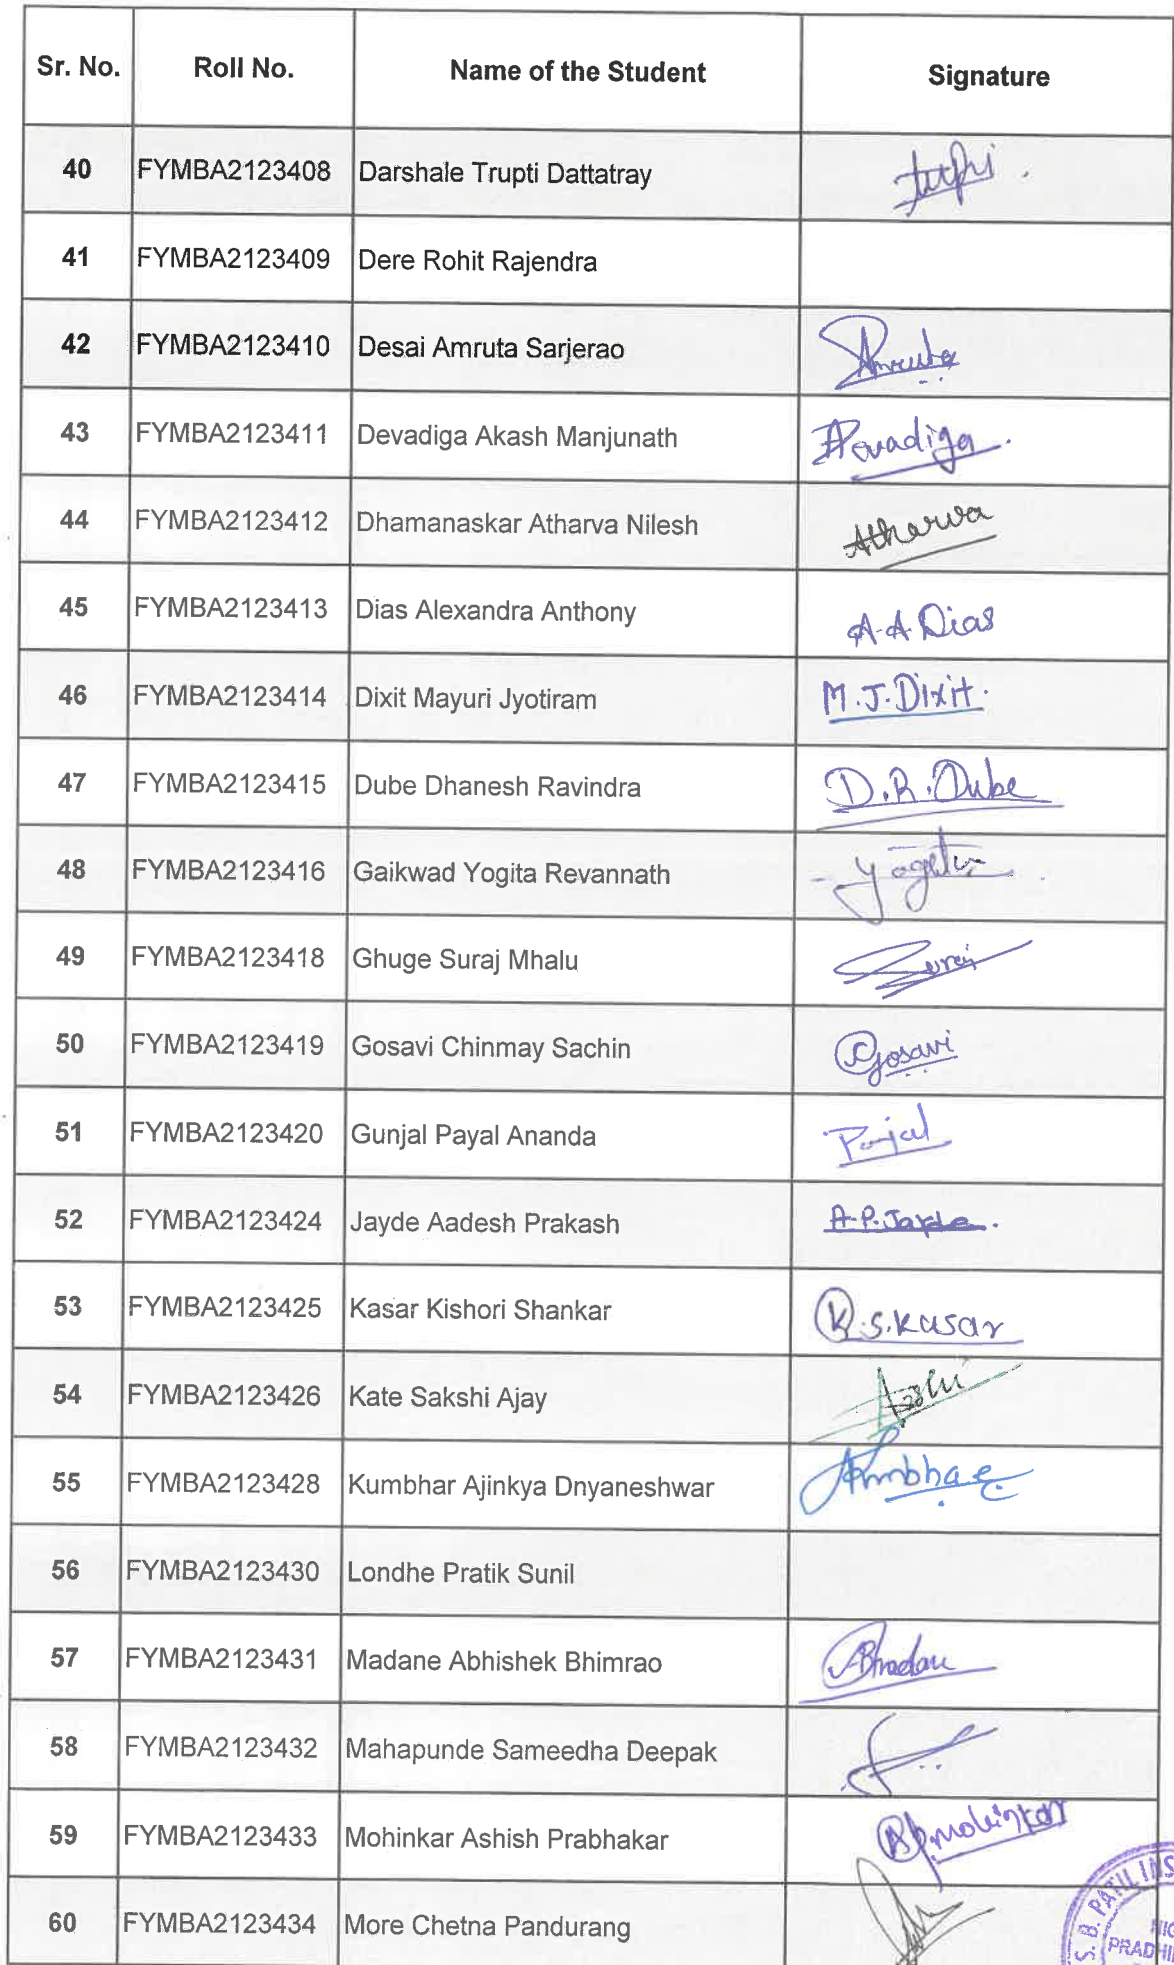 Sr. No. Roll No. Name of the Student Signature
40 FYMBA2123408 Darshale Trupti Dattatray
41 FYMBA2123409 Dere Rohit Rajendra
42 FYMBA2123410 Desai Amruta Sarjerao Amruta
43 FYMBA2123411 Devadiga Akash Manjunath Devadiga
44 FYMBA2123412 Dhamanaskar Atharva Nilesh Atharva
45 FYMBA2123413 Dias Alexandra Anthony A-A Dias
46 FYMBA2123414 Dixit Mayuri Jyotiram M.J.Dixit.
47 FYMBA2123415 Dube Dhanesh Ravindra D.R.Dube
48 FYMBA2123416 Gaikwad Yogita Revannath Yogita
49 FYMBA2123418 Ghuge Suraj Mhalu Suraj
50 FYMBA2123419 Gosavi Chinmay Sachin Gosavi
51 FYMBA2123420 Gunjal Payal Ananda Payal
52 FYMBA2123424 Jayde Aadesh Prakash A.P.Jayde.
53 FYMBA2123425 Kasar Kishori Shankar K.S.Kasar
54 FYMBA2123426 Kate Sakshi Ajay
55 FYMBA2123428 Kumbhar Ajinkya Dnyaneshwar
56 FYMBA2123430 Londhe Pratik Sunil
57 FYMBA2123431 Madane Abhishek Bhimrao
58 FYMBA2123432 Mahapunde Sameedha Deepak
59 FYMBA2123433 Mohinkar Ashish Prabhakar
60 FYMBA2123434 More Chetna Pandurang
S. B. PATIL INS
NIG
PRADHI